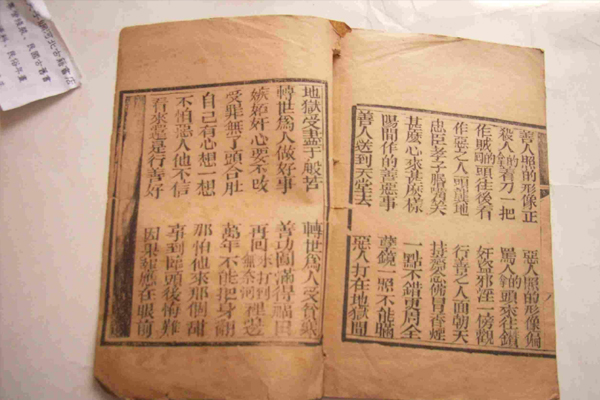 善人照的形像正 惡人照的形像偏
殺人的背着刀一把 罵人的頭來往鎖
作賊的頭往後看 奸盜邪淫一傍觀
作惡之人頭 地 行善之人面朝天
忠臣孝子眼 笑 持齋念佛冒香煙
甚麼心來甚麼樣 一點不錯更周全
陽間作的善惡事 孽鏡一照不能瞞
善人送到天堂去 惡人打在地獄間
地獄受盡千般苦 轉世爲人受貧寒
轉世爲人做好事 善功圓滿得福田
嫉妬奸心要不改 再回 打到裡邊
受罪無了頭合肚 萬年不能把身翻
自己有心想一想 那怕他來那個甜
不怕惡人他不信 事到臨頭後悔難
看來還是行善好 因果報應在眼前